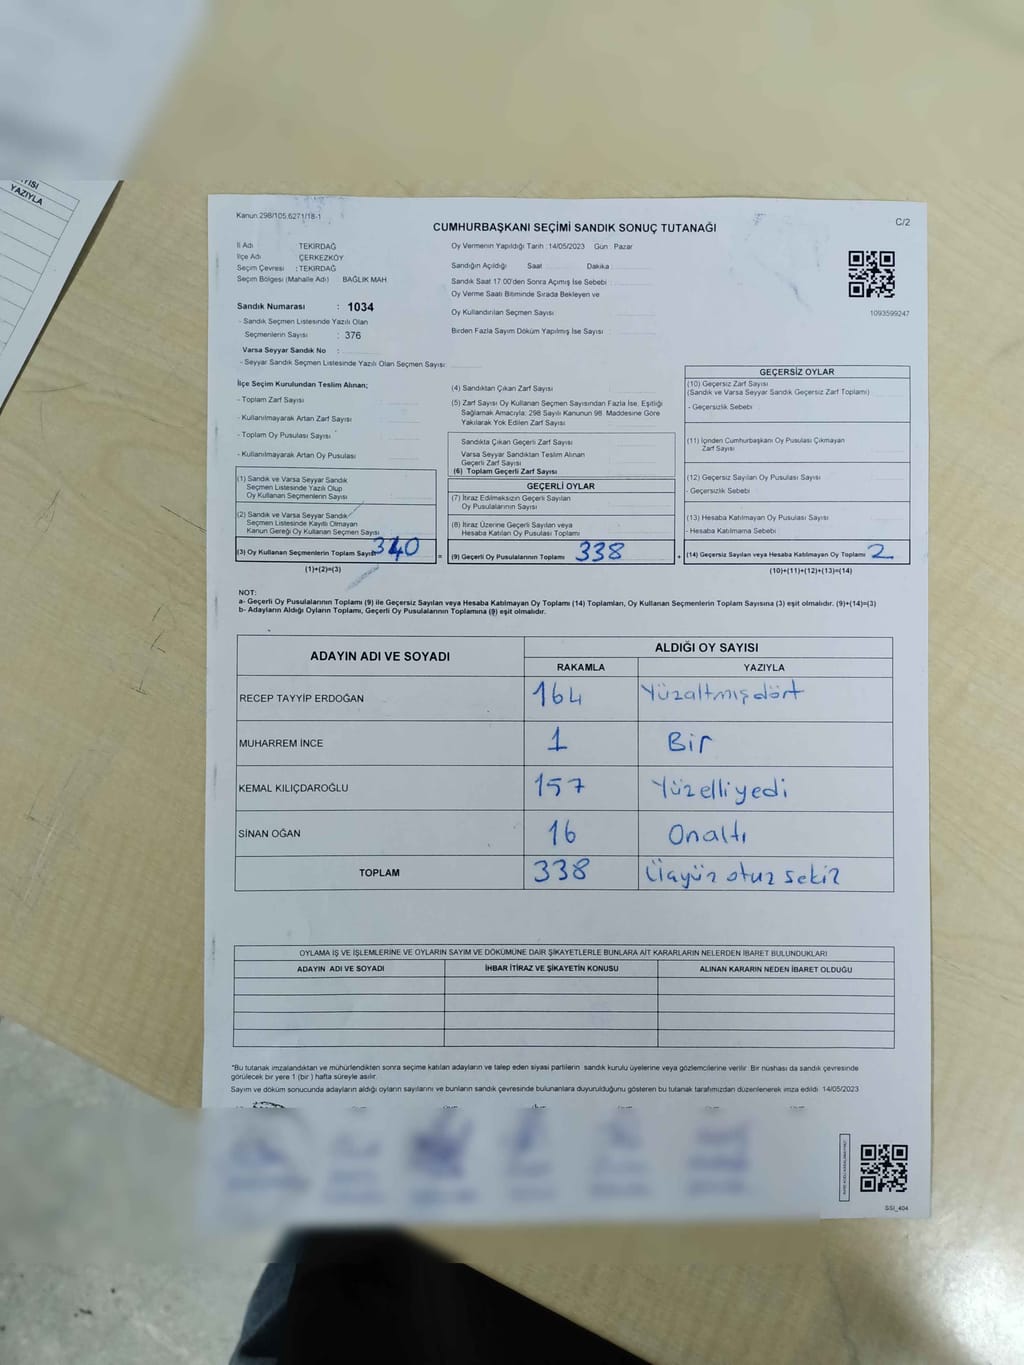 YISI
YAZIYLA
Kanun 298/105.6271/18-1
C/2
CUMHURBAŞKANI SEÇİMİ SANDIK SONUÇ TUTANAĞI
İl Adı TEKİRDAĞ
İlçe Adı ÇERKEZKÖY
Seçim Çevresi : TEKİRDAĞ
Seçim Bölgesi (Mahalle Adı) BAĞLIK MAH
Sandık Numarası : 1034
- Sandık Seçmen Listesinde Yazılı Olan
Seçmenlerin Sayısı : 376
Varsa Seyyar Sandık No :
- Seyyar Sandık Seçmen Listesinde Yazılı Olan Seçmen Sayısı:
Oy Vermenin Yapıldığı Tarih : 14/05/2023 Gün : Pazar
Sandığın Açıldığı Saat Dakika :
Sandık Saat 17:00'den Sonra Açımış İse Sebebi :
Oy Verme Saati Bitiminde Sırada Bekleyen ve
Oy Kullandırılan Seçmen Sayısı
Birden Fazla Sayım Döküm Yapılmış İse Sayısı :
1093599247
İlçe Seçim Kurulundan Teslim Alınan;
- Toplam Zarf Sayısı
- Kullanılmayarak Artan Zarf Sayısı
- Toplam Oy Pusulası Sayısı
- Kullanılmayarak Artan Oy Pusulası
(1) Sandık ve Varsa Seyyar Sandık
Seçmen Listesinde Yazılı Olup
Oy Kullanan Seçmenlerin Sayısı
(2) Sandık ve Varsa Seyyar Sandık
Seçmen Listesinde Kayıtlı Olmayan
Kanun Gereği Oy Kullanan Seçmen Sayısı
(3) Oy Kullanan Seçmenlerin Toplam Sayısı 340
(1)+(2)=(3)
=
(4) Sandıktan Çıkan Zarf Sayısı
(5) Zarf Sayısı Oy Kullanan Seçmen Sayısından Fazla İse, Eşitliği
Sağlamak Amacıyla; 298 Sayılı Kanunun 98. Maddesine Göre
Yakılarak Yok Edilen Zarf Sayısı
Sandıkta Çıkan Geçerli Zarf Sayısı
Varsa Seyyar Sandıktan Teslim Alınan
Geçerli Zarf Sayısı
(6) Toplam Geçerli Zarf Sayısı
GEÇERLİ OYLAR
(7) İtiraz Edilmeksizin Geçerli Sayılan
Oy Pusulalarının Sayısı
(8) İtiraz Üzerine Geçerli Sayılan veya
Hesaba Katılan Oy Pusulaları Toplamı
(9) Geçerli Oy Pusulalarının Toplamı 338
+
GEÇERSİZ OYLAR
(10) Geçersiz Zarf Sayısı
(Sandık ve Varsa Seyyar Sandık Geçersiz Zarf Toplamı)
- Geçersizlik Sebebi
(11) İçinden Cumhurbaşkanı Oy Pusulası Çıkmayan
Zarf Sayısı
(12) Geçersiz Sayılan Oy Pusulası Sayısı
- Geçersizlik Sebebi
(13) Hesaba Katılmayan Oy Pusulası Sayısı
- Hesaba Katılmama Sebebi
(14) Geçersiz Sayılan veya Hesaba Katılmayan Oy Toplamı 2
(10)+(11)+(12)+(13)=(14)
NOT:
a- Geçerli Oy Pusulalarının Toplamı (9) ile Geçersiz Sayılan veya Hesaba Katılmayan Oy Toplamı (14) Toplamları, Oy Kullanan Seçmenlerin Toplam Sayısına (3) eşit olmalıdır. (9)+(14)=(3)
b- Adayların Aldığı Oyların Toplamı, Geçerli Oy Pusulalarının Toplamına (9) eşit olmalıdır.
ADAYIN ADI VE SOYADI ALDIĞI OY SAYISI
RAKAMLA YAZIYLA
RECEP TAYYİP ERDOĞAN 164 Yüzaltmışdört
MUHARREM İNCE 1 Bir
KEMAL KILIÇDAROĞLU 157 Yüzelliyedi
SİNAN OĞAN 16 Onaltı
TOPLAM 338 Üçyüz otuz sekiz
OYLAMA İŞ VE İŞLEMLERİNE VE OYLARIN SAYIM VE DÖKÜMÜNE DAİR ŞİKAYETLERLE BUNLARA AİT KARARLARIN NELERDEN İBARET BULUNDUKLARI
ADAYIN ADI VE SOYADI İHBAR İTİRAZ VE ŞİKAYETİN KONUSU ALINAN KARARIN NEDEN İBARET OLDUĞU
"Bu tutanak imzalandıktan ve mühürlendikten sonra seçime katılan adayların ve talep eden siyasi partilerin sandık kurulu üyelerine veya gözlemcilerine verilir. Bir nüshası da sandık çevresinde
görülecek bir yere 1 (bir ) hafta süreyle asılır.
Sayım ve döküm sonucunda adayların aldığı oyların sayılarını ve bunların sandık çevresinde bulunanlara duyurulduğunu gösteren bu tutanak tarafımızdan düzenlenerek imza edildi 14/05/2023
SSI_404